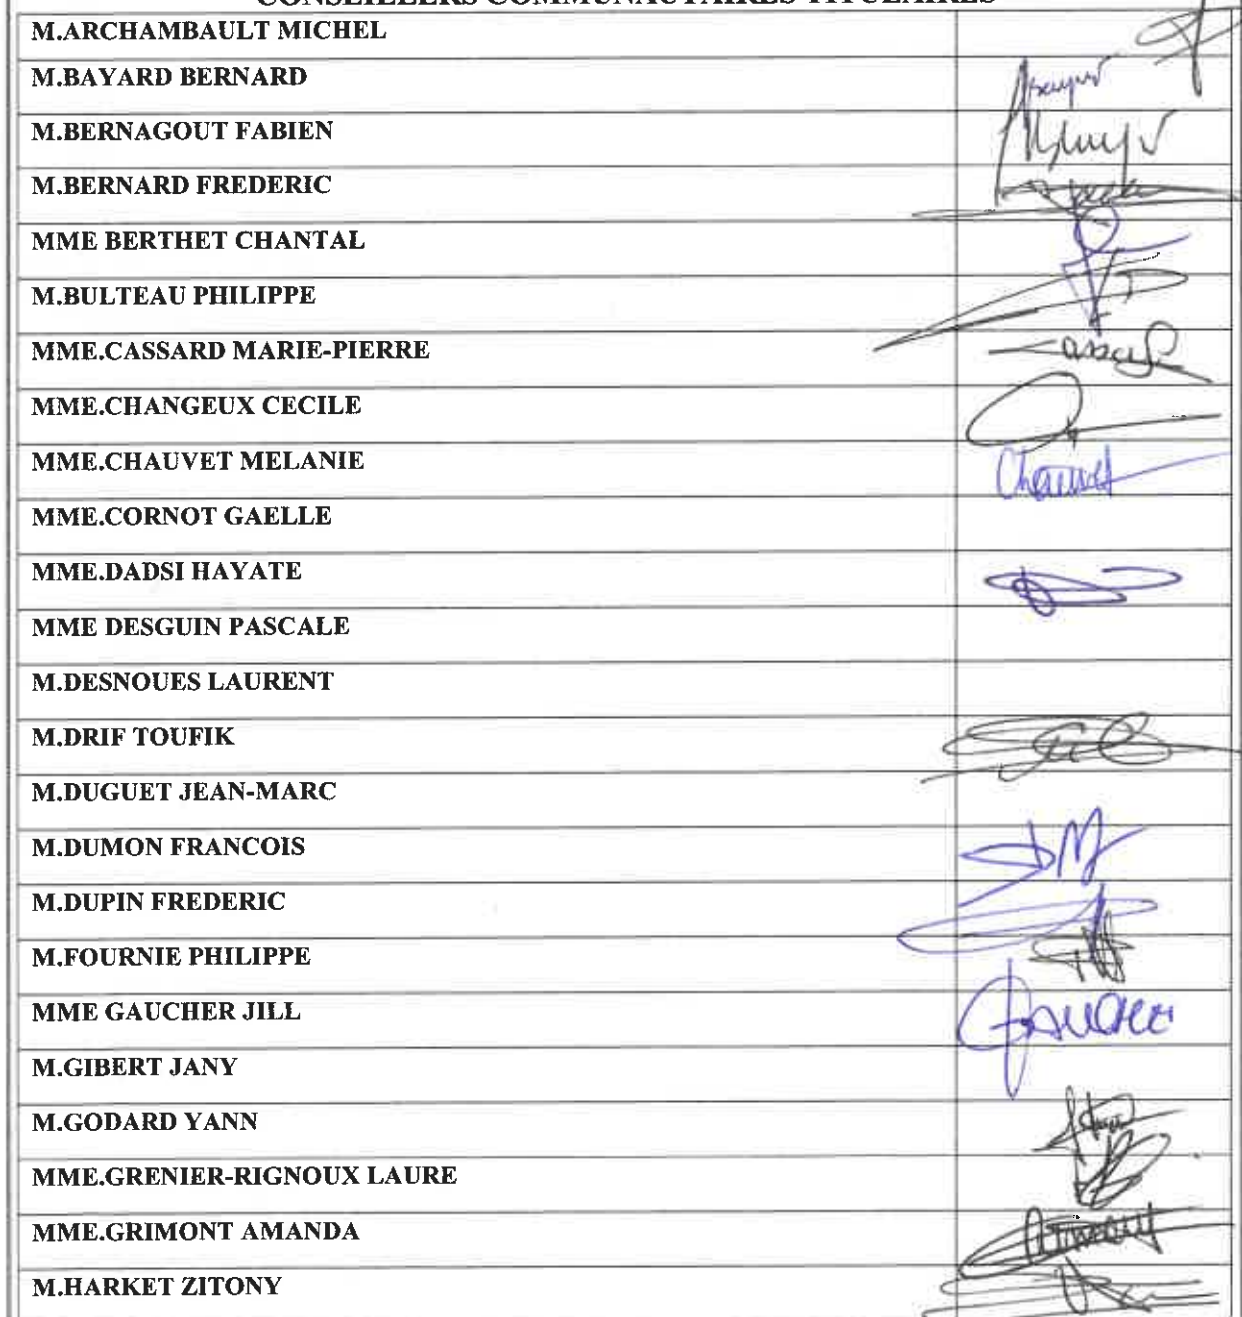 CONSEILLERS COMMUNAUTAIRES TITULAIRES
M.ARCHAMBAULT MICHEL
M.BAYARD BERNARD
M.BERNAGOUT FABIEN
M.BERNARD FREDERIC
MME BERTHET CHANTAL
M.BULTEAU PHILIPPE
MME.CASSARD MARIE-PIERRE
MME.CHANGEUX CECILE
MME.CHAUVET MELANIE Chauvet
MME.CORNOT GAELLE
MME.DADSI HAYATE
MME DESGUIN PASCALE
M.DESNOUES LAURENT
M.DRIF TOUFIK
M.DUGUET JEAN-MARC
M.DUMON FRANCOIS
M.DUPIN FREDERIC
M.FOURNIE PHILIPPE
MME GAUCHER JILL
M.GIBERT JANY
M.GODARD YANN
MME.GRENIER-RIGNOUX LAURE
MME.GRIMONT AMANDA
M.HARKET ZITONY